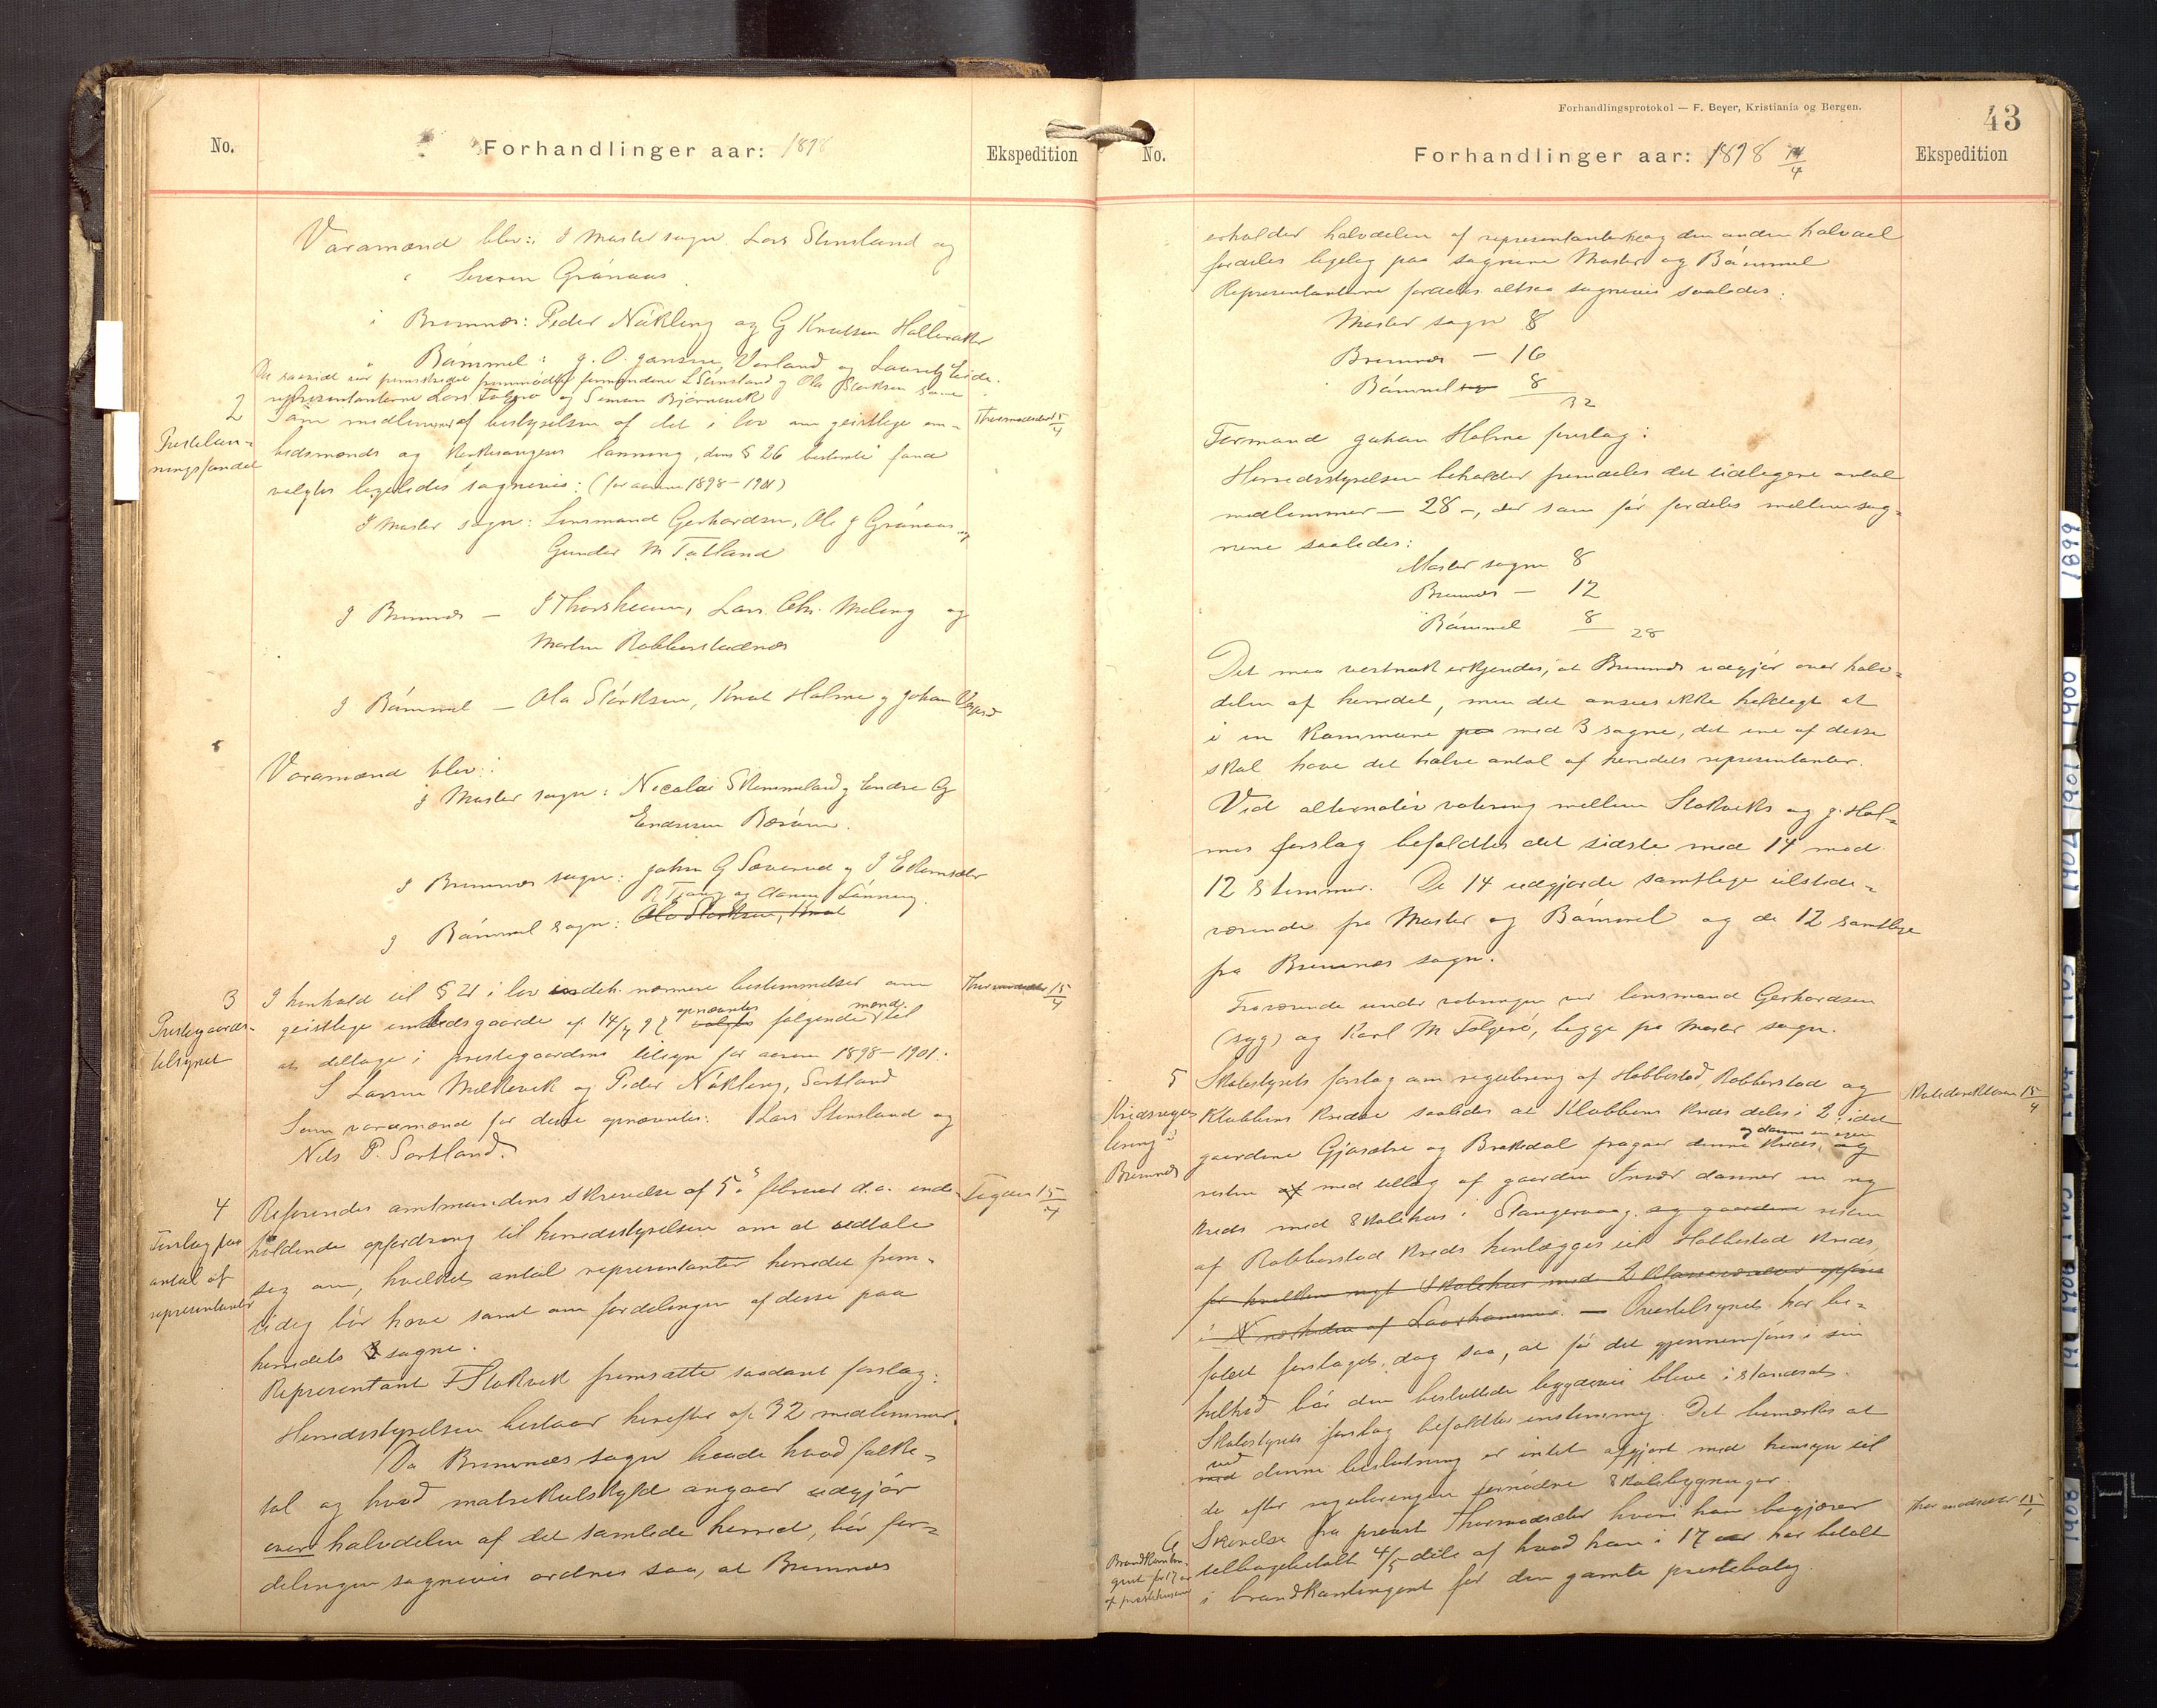 No.
Forhandlinger aar: 1898
Ekspedition
Varamænd blev: I Moster sogn. Lars Stensland og
Severin Grønaas
i Bremnes: Peder Nøkling og G Knutsen Halleraker
" Bømmel: J. O. Jansen, Vorland og Lauritz Eide.
De saavidt var fremskredet fremmødte formændene L Stensland og Ole Størksen samt
representanterne Lars Folgerø og Simon Bjørnevik
2
Presteløn-
ningsfondet
Som medlemmer af bestyrelsen af det i lov om geistlige em-
Thormodsæter 15/4
bedsmænds og kirkesangeres lønning, dens § 26 bestemte fond
valgtes ligeledes sognevis: (for aarene 1898-1901)
I Moster sogn: Lensmand Gerhardsen, Ole J Grønaas og
Gunder M Totland
I Bremnes — I Thorsheim, Lars Chr. Meling og
Martin Robberstadnes
I Bømmel — Ola Størksen, Knut Holme og Johan
Varamænd blev:
I Moster sogn: Nicolai Stemmeland og Endre Og
Endresen Rørøen.
I Bremnes sogn: John G Sæverud og I E Hemsæter
R Tjong og Aamund Lønning.
I Bømmel sogn: Ole Størksen, Knut
3
Prestegaards-
tilsynet
I henhold til § 21 i lov indeh. nærmere bestemmelser om
Thormodsæter 15/4
geistlige embedsgaarde af 14/7 97 valgtes opnævntes følgende mænd til
at deltage i prestegaardens tilsyn for aarene 1898-1901.
S Larsen Melkevik og Peder Nøkling, Sortland
Som varamænd for disse opnævntes: Lars Stensland og
Nils P. Sortland.
4
Forslag paa
antal af
representanter
Refereredes amtmandens skrivelse af 5. februar d.a. inde-
15/4
holdende opfordring til herredsstyrelsen om at udtale
sig om, hvilket antal representanter herredet frem-
tidig bør have samt om fordelingen af disse paa
herredets 3 sogne.
Representant F Stokvik fremsatte saadant forslag:
Herredsstyrelsen bestaar herefter af 32 medlemmer.
Da Bremnes sogn baade hvad folke-
tal og hvad matrikulskyld angaar udgjør
over halvdelen af det samlede herred, bør for-
delingen sognevis ordnes saa, at Bremnes
Forhandlingsprotokol — F. Beyer, Kristiania og Bergen.
43
No.
Forhandlinger aar: 1898 14/4
Ekspedition
erholder halvdelen af representanterne og den anden halvdel
fordeles ligelig paa sognene Moster og Bømmel
Representanterne fordeles altsaa sognevis saaledes:
Moster sogn 8
Bremnes — 16
Bømmel sogn 8
32
Formand Johan Holme foreslog:
Herredsstyrelsen beholder fremdeles det tidligere antal
medlemmer — 28 —, der som før fordeles mellem sog-
nene saaledes:
Moster sogn 8
Bremnes — 12
Bømmel 8
28
Det maa vistnok erkjendes, at Bremnes udgjør over halv-
delen af herredet, men det ansees ikke heldigt at
i en kommune paa med 3 sogne, det ene af disse
skal have det halve antal af herredets representanter.
Ved alternativ votering mellem Stokviks og J. Hol-
mes forslag befaldtes det sidste med 14 mod
12 stemmer. De 14 udgjorde samtlige tilstede-
værende fra Moster og Bømmel og de 12 samtlige
fra Bremnes sogn.
Fraværende under voteringen var lensmand Gerhardsen
(syg) og Karl M Folgerø, begge fra Moster sogn.
5
Kredsregu-
lering i
Bremnes
Skolestyrets forslag om regulering af Hobbestad, Robberstad og
Skoledirektøren 15/4
Klubbens kredse saaledes at Klubbens kreds deles i 2, idet
gaardene Gjøsæter og Brakedal fragaar denne kreds, og danne en egen og
resten af med tillæg af gaarden Innvær danner en ny
kreds med skolehus i Stangervaag. og gaardene resten
af Robberstad kreds henlægges til Hobbestad kreds,
for hvilken nyt skolehus med 2 klasseværelser opføres
i Nærheden af Laurhammer. — Overtilsynet har be-
faldt forslaget, dog saa, at før det gjennemføres i sin
helhed bør den besluttede byggeri blive istandsat.
Skolestyrets forslag befaldtes enstemmig. Det bemærkes at
med ved denne beslutning er intet afgjort med hensyn til
de efter reguleringen fornødne skolebygninger.
6
Brandkontin-
gent for 17 aar
af prestehusene
Skrivelse fra provst Thormodsæter hvori han begjærer
Thormodsæter 15/4
tilbagebetalt 4/5 dele af hvad han i 17 aar har betalt
i brandkontingent for den gamle prestebolig.
1899
1900
1901
1902
1903
1904
1905
1906
1908